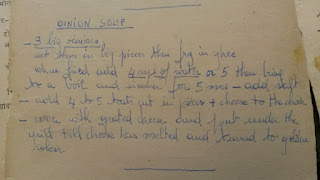 OINION SOUP
- 3 big onions,
cut them in big pieces then fry in ghee
when fried add 4 cups of water or 5 then bring
to a boil and simmer for 5 min - add salt
- add 4 to 5 toasts cut in pieces + cheese to the
- cover with grated cheese and put under the
grill till cheese has melted and turned to golden
colour